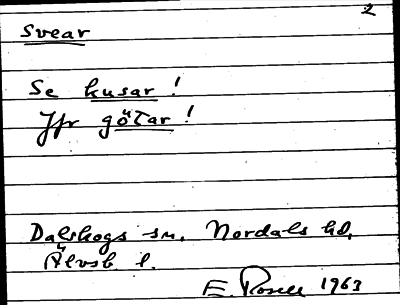 2
svear
Se kusar!
Jfr götar!
Dalskogs sn. Nordals hd.
Älvsb. l.
E. Rosell 1963